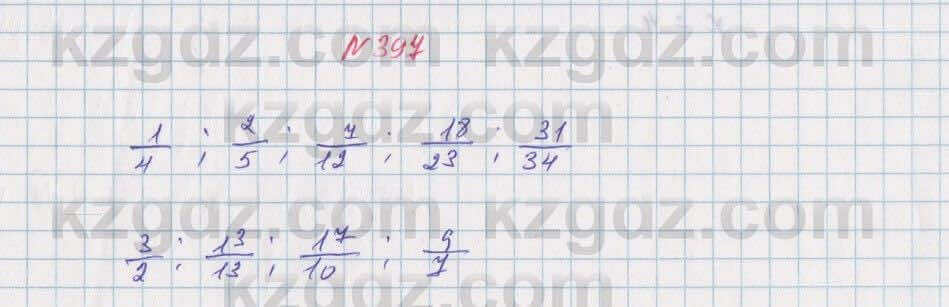 kzgdz.com kzgdz.com
№ 397
kzgdz.com
1/4 ; 2/5 ; 7/12 ; 18/23 ; 31/34
kzgdz.com kzgdz.com
3/2 ; 13/13 ; 17/10 ; 9/7
kzgdz.com